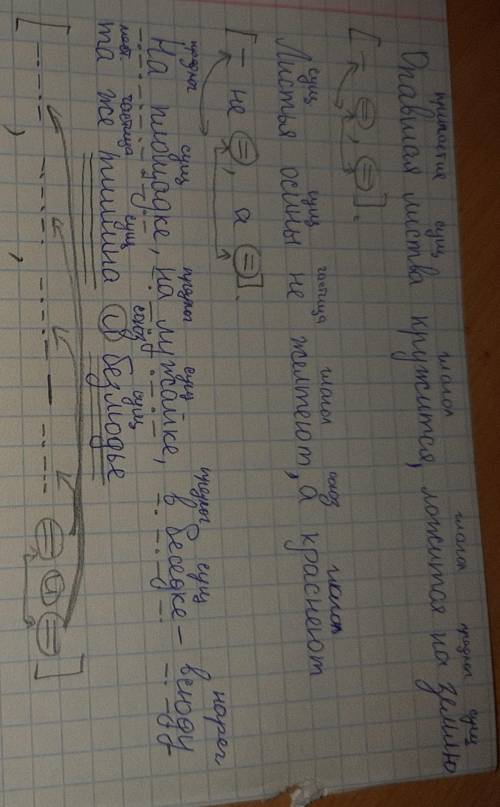 причастие сущ глагол глагол предлог сущ
Опавшая листва кружится, ложится на землю
[– =, =].
сущ сущ частица глагол союз глагол
Листья осины не желтеют, а краснеют
[– не =, а =].
предлог сущ предлог сущ предлог сущ нареч
На площадке, на лужайке, в беседке – всюду
мест частица сущ союз сущ
та же тишина и безмолвье
[ , , – = и =]